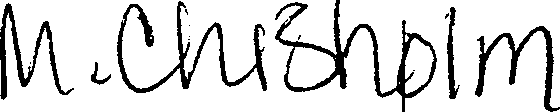 M. Chisholm